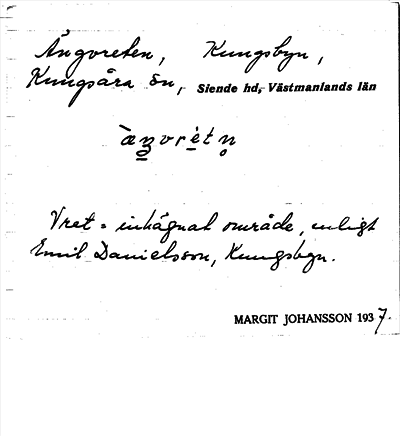 Ängvreten, Kungsbyn,
Kungsåra sn, Siende hd, Västmanlands län
Vret = inhägnat område, enligt
Emil Danielsson, Kungsbyn.
MARGIT JOHANSSON 1937.